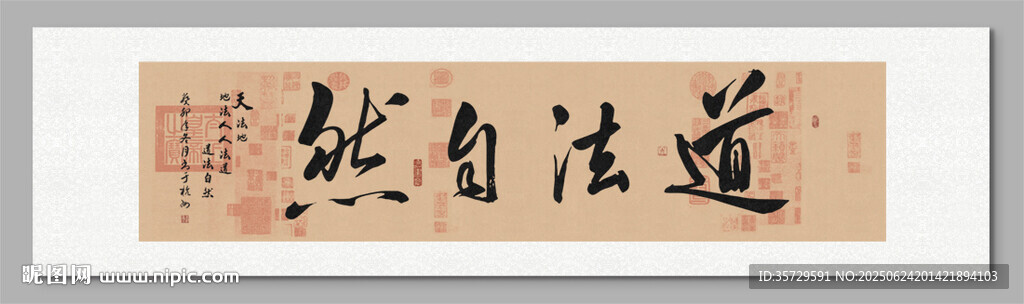 道法自然
天法地
地法人人法道
道法自然
癸卯年冬月书于杭州
昵图网 www.nipic.com
ID:35729591 NO:20250624201421894103